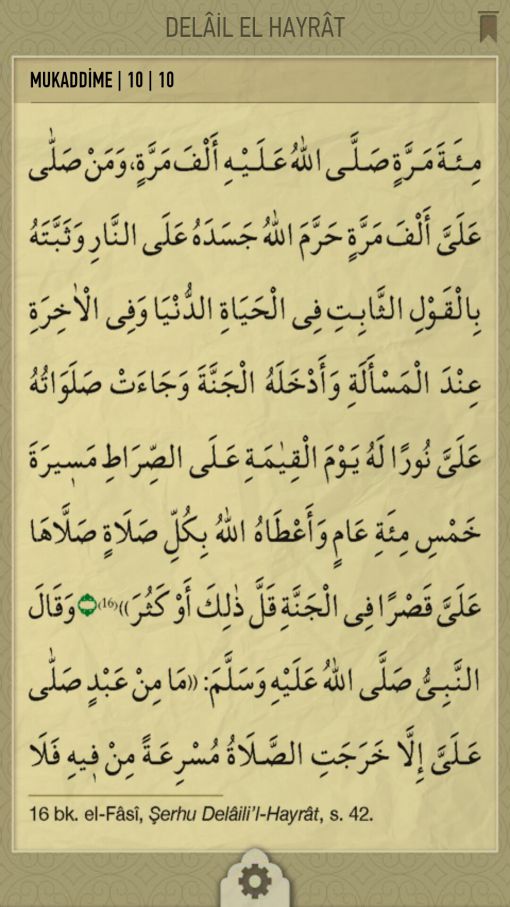 DELÂİL EL HAYRÂT
MUKADDİME | 10 | 10
مِئَةَ مَرَّةٍ صَلَّى اللهُ عَلَيْهِ أَلْفَ مَرَّةٍ، وَمَنْ صَلّٰى
عَلَيَّ أَلْفَ مَرَّةٍ حَرَّمَ اللهُ جَسَدَهُ عَلَى النَّارِ وَثَبَّتَهُ
بِالْقَوْلِ الثَّابِتِ فِى الْحَيَاةِ الدُّنْيَا وَفِى الْاٰخِرَةِ
عِنْدَ الْمَسْأَلَةِ وَأَدْخَلَهُ الْجَنَّةَ وَجَاءَتْ صَلَوَاتُهُ
عَلَيَّ نُورًا لَهُ يَوْمَ الْقِيٰمَةِ عَلَى الصِّرَاطِ مَسِيرَةَ
خَمْسِ مِئَةِ عَامٍ وَأَعْطَاهُ اللهُ بِكُلِّ صَلَاةٍ صَلَّاهَا
عَلَيَّ قَصْرًا فِى الْجَنَّةِ قَلَّ ذٰلِكَ أَوْ كَثُرَ»(16) وَقَالَ
النَّبِىُّ صَلَّى اللهُ عَلَيْهِ وَسَلَّمَ: «مَا مِنْ عَبْدٍ صَلّٰى
عَلَيَّ إِلَّا خَرَجَتِ الصَّلَاةُ مُسْرِعَةً مِنْ فِيهِ فَلَا
16 bk. el-Fâsî, Şerhu Delâili’l-Hayrât, s. 42.